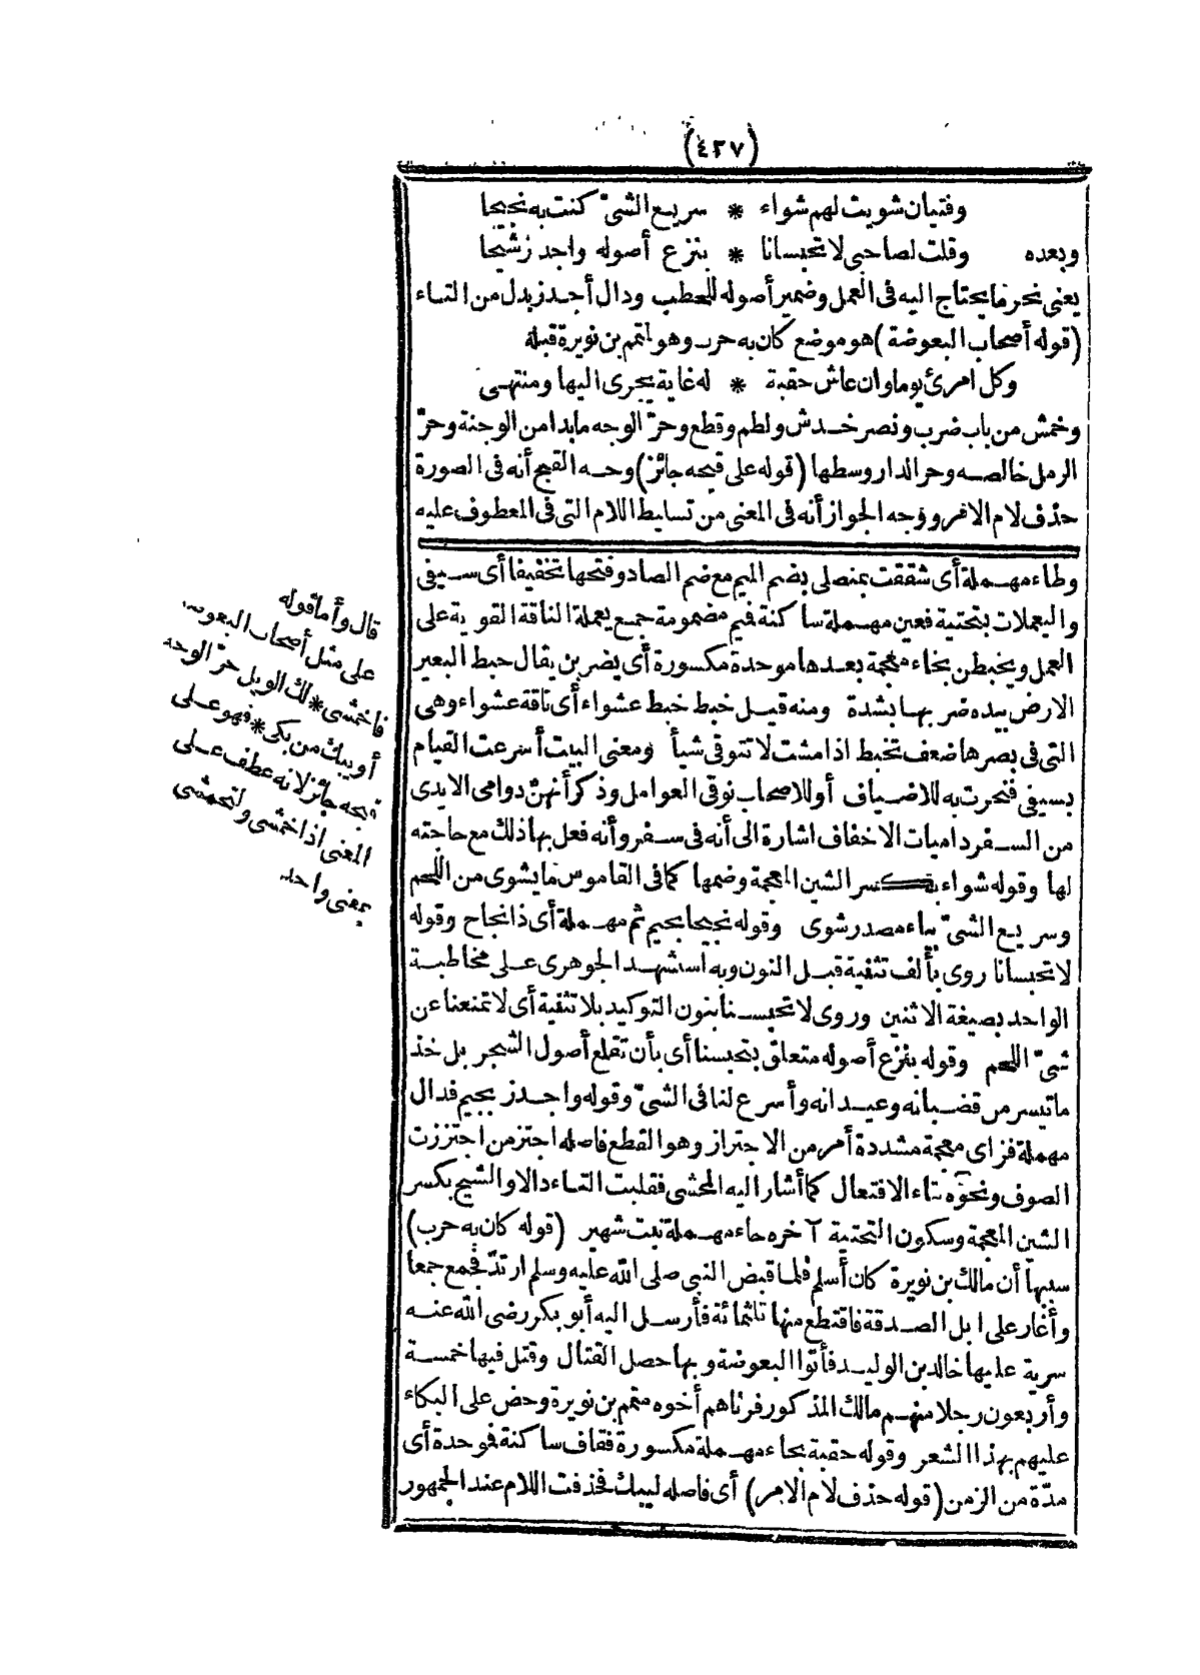 (٤٢٧)
وفتيان شويت لهم شواء * سريع الشيّ كنت به نجيحا
وبعده وقلت لصاحبي لا تحبسانا * بنزع أصوله واجدز شيحا
يعني نحر ما يحتاج اليه في العمل وضمير أصوله للحطب ودال أجدز بدل من التاء
(قوله أصحاب البعوضة) هو موضع كان به حرب وهو لمتمم بن نويرة قبله
وكل امرئ يوما وان عاش حقبة * له غاية يجرى اليها ومنتهى
وخمش من باب ضرب ونصر خدش ولطم وقطع وحرّ الوجه ما بدا من الوجنة وحرّ
الرمل خالصه وحر الدار وسطها (قوله على قبحه جائز) وجه القبح أنه في الصورة
حذف لام الامر ووجه الجواز أنه في المعنى من تسليط اللام التي في المعطوف عليه
وطاء مهملة أى شققت بمنصلى بضم الميم مع ضم الصاد وفتحها تخفيفا أى سيفى
واليعملات بتحتية فعين مهملة ساكنة فميم مضمومة جمع يعملة الناقة القوية على
العمل ويخبطن بخاء معجمة بعدها موحدة مكسورة أى يضربن يقال خبط البعير
الارض بيده ضربها بشدة ومنه قيل خبط خبط عشواء أى ناقة عشواء وهى
التى فى بصرها ضعف تخبط اذا مشت لا تتوقى شيأ ومعنى البيت أسرعت القيام
بسيفى فنحرت به للاضياف أو للاصحاب نوقى العوامل وذكر أنهنّ دوامى الايدى
من السفر داميات الاخفاف اشارة الى أنه فى سفر وأنه فعل بها ذلك مع حاجته
لها وقوله شواء بكسر الشين المعجمة وضمها كما فى القاموس ما يشوى من اللحم
وسريع الشيّ بياء مصدر شوى وقوله نجيحا بجيم ثم مهملة أى ذا نجاح وقوله
لا تحبسانا روى بألف تثنية قبل النون وبه استشهد الجوهرى على مخاطبة
الواحد بصيغة الاثنين وروى لا تحبسنا بنون التوكيد بلا تثنية أى لا تمنعنا عن
شىّ اللحم وقوله بنزع أصوله متعلق بتحبسنا أى بأن تقلع أصول الشجر بل خذ
ما تيسر من قضبانه وعيدانه وأسرع لنا فى الشىّ وقوله واجدز بجيم فدال
مهملة فزاى معجمة مشددة أمر من الاجتزاز وهو القطع فاصله اجتز من اجتززت
الصوف ونحوه بتاء الافتعال كما أشار اليه المحشى فقلبت التاء دالا والشيح بكسر
الشين المعجمة وسكون التحتية آخره حاء مهملة نبت شهير (قوله كان به حرب)
سببها أن مالك بن نويرة كان أسلم فلما قبض النبى صلى الله عليه وسلم ارتدّ فجمع جمعا
وأغار على ابل الصدقة فاقتطع منها ثلثمائة فأرسل اليه أبو بكر رضى الله عنه
سرية عليها خالد بن الوليد فأتوا البعوضة وبها حصل القتال وقتل فيها خمسة
وأربعون رجلا منهم مالك المذكور فرثاهم أخوه متمم بن نويرة وحض على البكاء
عليهم بهذا الشعر وقوله حقبة بحاء مهملة مكسورة فقاف ساكنة فموحدة أى
مدّة من الزمن (قوله حذف لام الامر) أى فاصله ليبك فحذفت اللام عند الجمهور
قال وأما قوله
على مثل أصحاب البعوضة
فاخمشى * لك الويل حرّ الوجه
أو يبك من بكى * فهو على
قبحه جائز لانه عطف على
المعنى اذ اخمشى ولتخمشى
بمعنى واحد